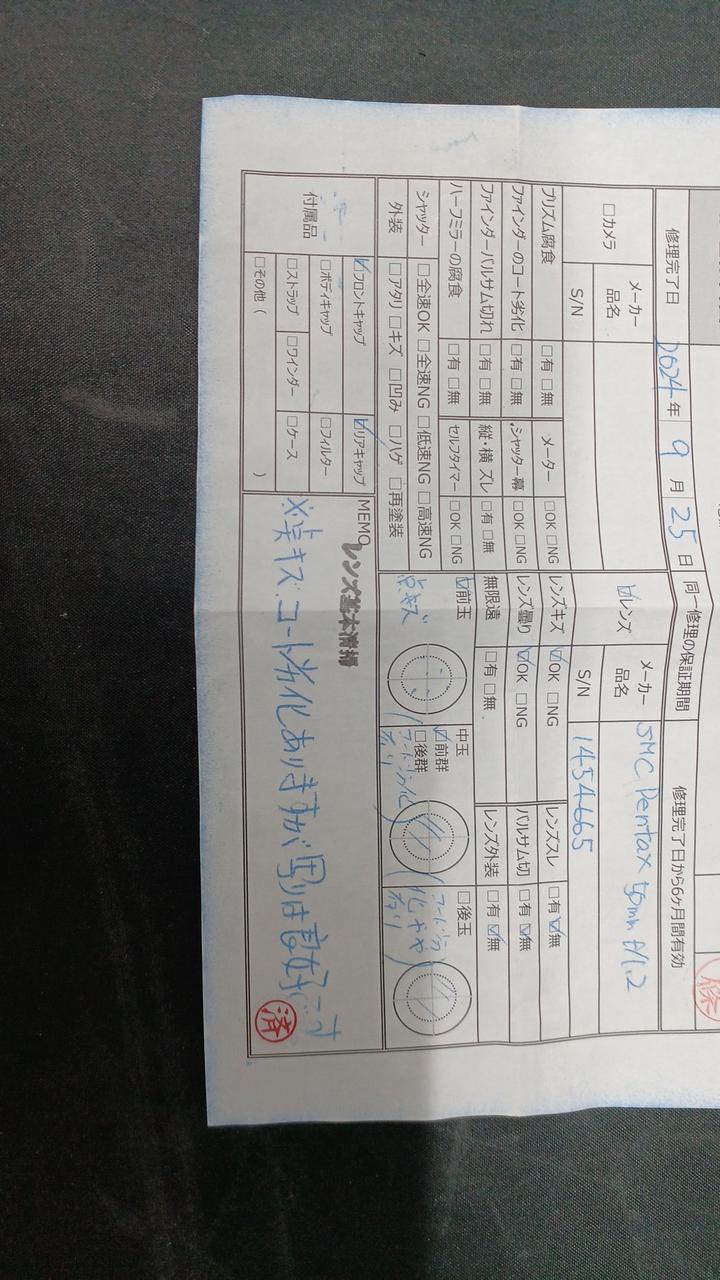 修理完了日 2024年 9月 25日 同一修理の保証期間 修理完了日から6ヶ月間有効
□カメラ メーカー品名 ☑レンズ メーカー品名 SMC Pentax 50mm f/1.2
S/N S/N 1454665
プリズム腐食 □有 □無 メーター □OK □NG レンズキズ ☑OK □NG レンズスレ □有 ☑無
ファインダーのコート劣化 □有 □無 シャッター幕 □OK □NG レンズ曇り ☑OK □NG バルサム切 □有 ☑無
ファインダーバルサム切れ □有 □無 縦・横 ズレ □有 □無 無限遠 □有 □無 レンズ外装 □有 ☑無
ハーフミラーの腐食 □有 □無 セルフタイマー □OK □NG ☑前玉 中玉 ☑前群 □後群 □後玉
点キズ コート劣化有り コート劣化やや有り
シャッター □全速OK □全速NG □低速NG □高速NG
外装 □アタリ □キズ □凹み □ハゲ □再塗装
付属品 ☑フロントキャップ ☑リアキャップ
□ボディキャップ □フィルター
□ストラップ □ワインダー □ケース
□その他（ ）
MEMO レンズ基本清掃
※点キズ、コート劣化ありますが写りは良好です
済
修